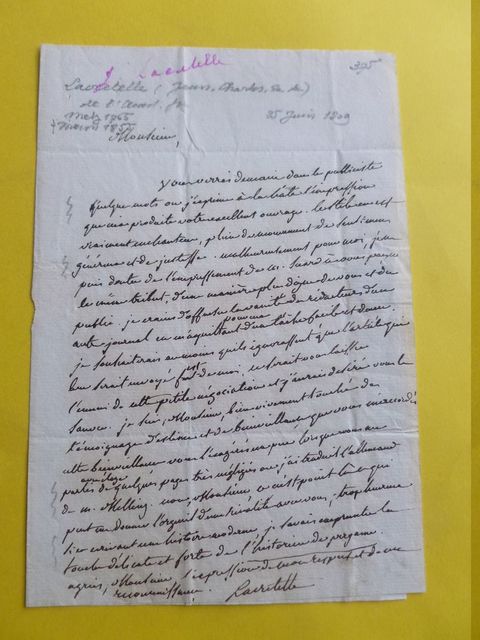 J. Lacretelle
395
Lacretelle (Jean, Charles, D. de)
de l'Acad. fr.
Metz 1765
+ Macon 1855
25 Juin 1809
Monsieur,
vous verrés demain dans le publiciste
quelques mots ou j'exprime à la hâte l'impression
que m'a produite votre excellent ouvrage. le style en est
vraiment enchanteur, plein de mouvement de sentimens
généreux et de justesse. malheureusement pour moi, je ne
puis douter de l'empressement de M. Suard à vous payer
le même tribut, d'une manière plus digne de vous et du
public. je crains d'offenser la vanité des rédacteurs d'un
autre journal en m'acquittant d'une tâche si douce.
je souhaiterais au moins qu'ils ignorassent que l'article qui
leur serait envoyé fust de moi. ce serait vous laisser
l'ennui de cette petite négociation et j'aurais désiré vous le
sauver. je suis, Monsieur, bien vivement touché du
témoignage d'estime et de bienveillance que vous m'accordés
cette bienveillance vous l'exagérés un peu lorsque vous me
parlés de quelques pages très négligées où j'ai traduit l'allemand
de M. non, Monsieur ce n'est point là ce qui
peut me donner l'orgueil d'une rivalité avec vous, trop heureux
si en écrivant une histoire moderne je savais emprunter la
touche délicate et forte de l'historien de pergame.
agréés, Monsieur, l'expression de mon respect et de ma
reconnaissance.
Lacretelle